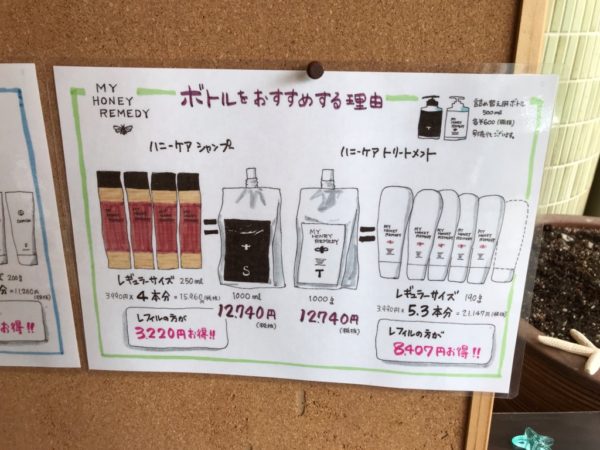 MY
HONEY
REMEDY
ボトルをおすすめする理由
詰め替え用ボトル
500ml
各¥600(税抜)
ハニーケア シャンプー
ハニーケア トリートメント
S
MY
HONEY
REMEDY
T
レギュラーサイズ 250ml
3,990円 × 4本分 = 15,960(税抜)
レフィルの方が
3,220円お得!!
1000ml
12,740円
(税抜)
1000g
12,740円
(税抜)
レギュラーサイズ 190g
3,990円 × 5.3本分 = 21,147円(税抜)
レフィルの方が
8,407円お得!!
200g
お得!!